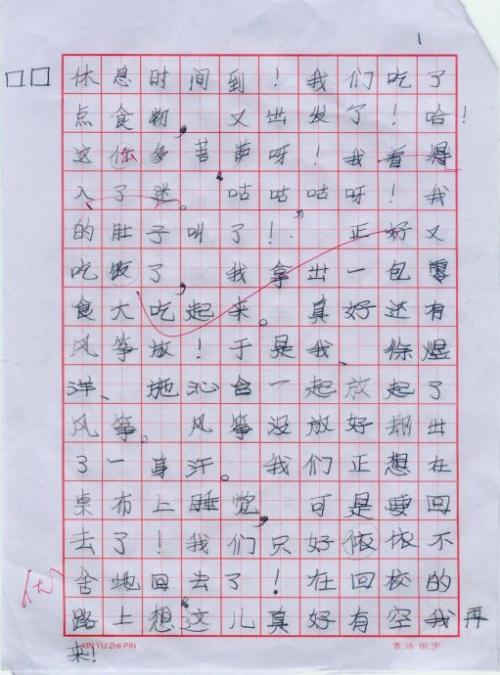 1
休息时间到！我们吃了
点食物，又出发了！哈！
这么多菩萨呀！我看得
入了迷。“咕咕咕呀！我
的肚子叫了！”正好又
吃饭了，我拿出一包零
食大吃起来。真好还有
风筝放！于是我、徐煜
洋、施沁台一起放起了
风筝。风筝没放好翻出
了一身汗。我们正想在
桌布上睡觉，可是要回
去了！我们只好依依不
舍地回去了！在回校的
路上想“这儿真好有空我再
来！
XIN YU ZHI PIN
书法田字